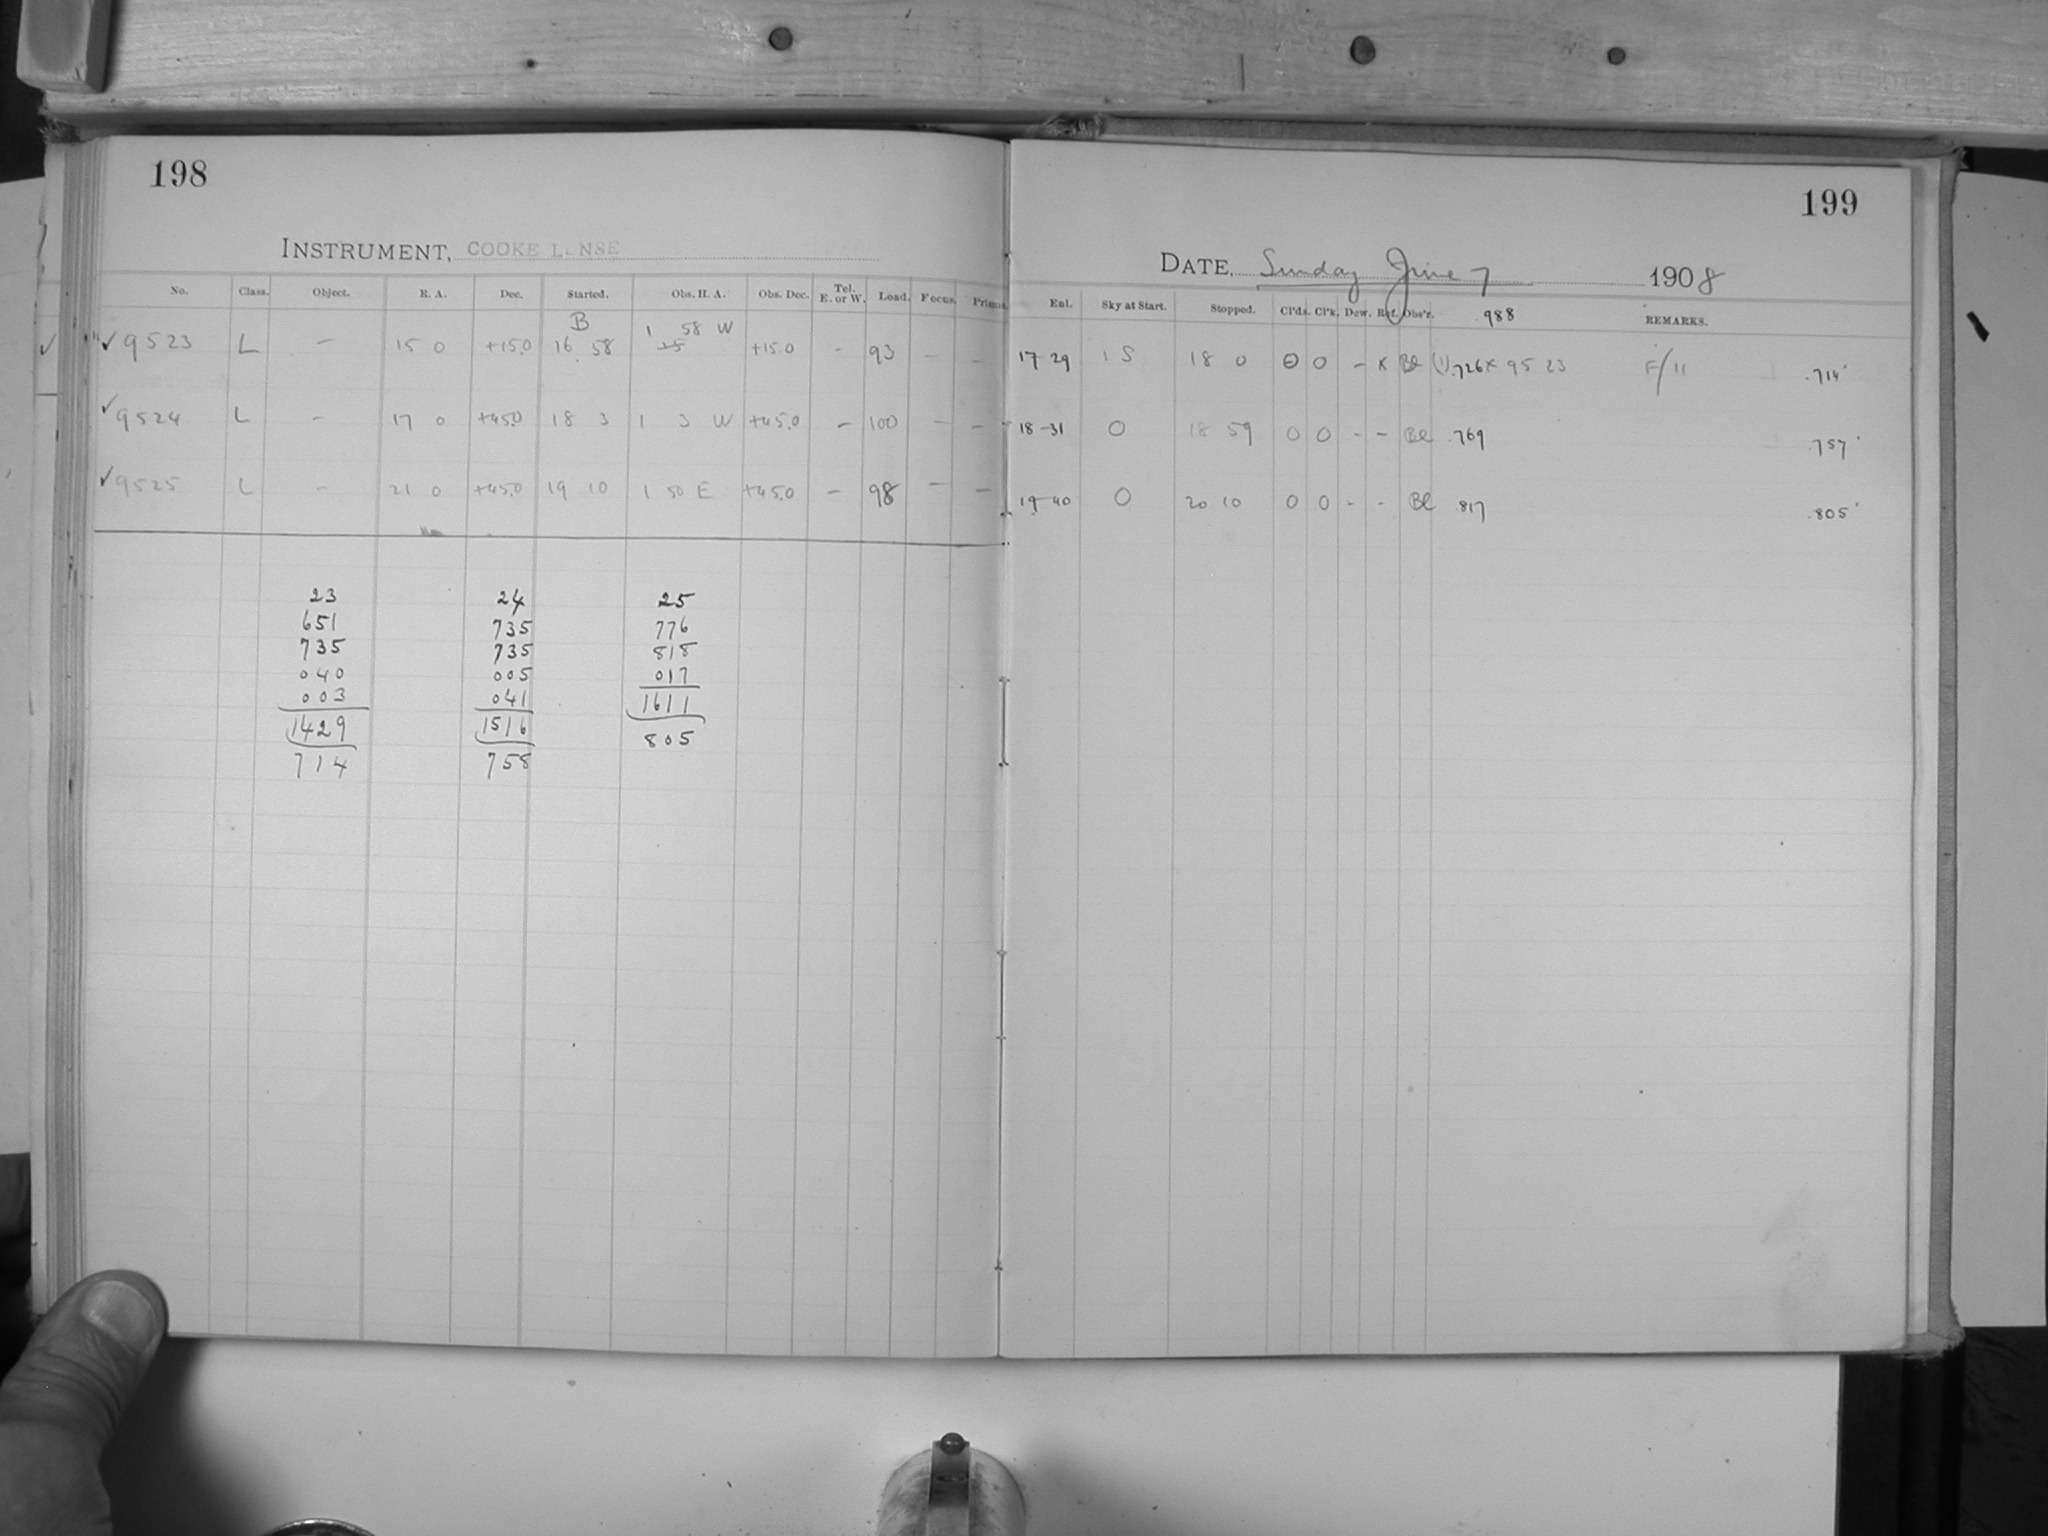 198
199
INSTRUMENT, COOKE LENSE
DATE, Sunday June 7 1908
No. Class. Object. R. A. Dec. Started. Obs. H. A. Obs. Dec. Tel. E. or W. Load. Focus. Prisms. Ent. Sky at Start. Stopped. Cl'ds. Cl'k. Dew. Ref. Obs'r. .988 REMARKS.
✓ 9523 L – 15 0 +15.0 B 16 58 1 58 W +15.0 – 93 – – 17-29 1 S 18 0 0 0 – x Bl (1) .726 x 9523 F/11 .714
✓ 9524 L – 17 0 +45.0 18 3 1 3 W +45.0 – 100 – – 18-31 0 18 59 0 0 – – Bl .769 .757
✓ 9525 L – 21 0 +45.0 19 10 1 50 E +45.0 – 98 – – 19-40 0 20 10 0 0 – – Bl .817 .805
23 24 25
651 735 776
735 735 818
040 005 017
003 041 1611
1429 1516 805
714 758